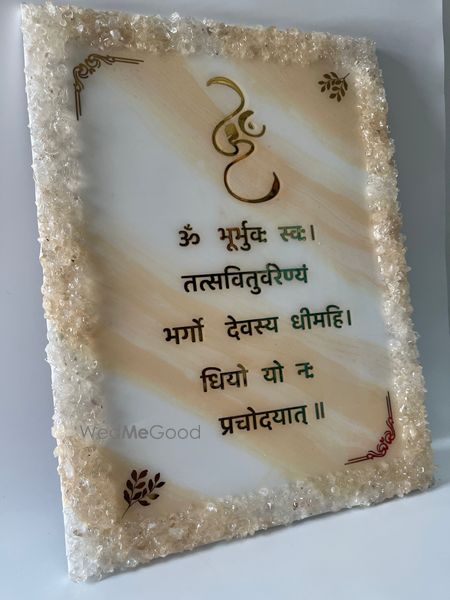 ॐ भूर्भुवः स्वः।
तत्सवितुर्वरेण्यं
भर्गो देवस्य धीमहि।
धियो यो नः
प्रचोदयात् ॥
WedMeGood